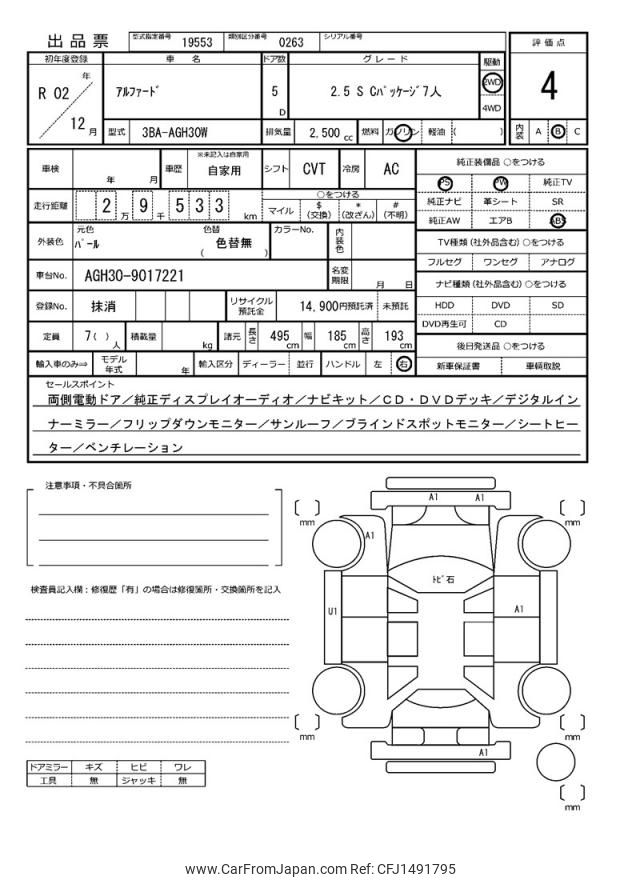 出品票 型式指定番号 19553 類別区分番号 0263 シリアル番号
初年度登録 車名 ドア数 グレード 駆動 評価点
R 02 年 12 月 アルファード 5 D 2.5 S Cパッケージ7人 2WD 4WD 4
型式 3BA-AGH30W 排気量 2,500 cc 燃料 ガソリン 軽油 ( ) 内装 A B C
車検 年 月 車歴 ※未記入は自家用 自家用 シフト CVT 冷房 AC 純正装備品 ○をつける
PS PW 純正TV
走行距離 2 万 9 千 5 3 3 km ○をつける 純正ナビ 革シート SR
マイル $ (交換) * (改ざん) # (不明) 純正AW エアB ABS
外装色 元色 パール 色替 色替無 ( ) カラーNo. 内装色 TV種類 (社外品含む) ○をつける
フルセグ ワンセグ アナログ
車台No. AGH30-9017221 名変期限 月 日 ナビ種類 (社外品含む) ○をつける
登録No. 抹消 リサイクル預託金 14,900円預託済 未預託 HDD DVD SD
DVD再生可 CD
定員 7( ) 人 積載量 kg 諸元 長さ 495 cm 幅 185 cm 高さ 193 cm 後日発送品 ○をつける
輸入車のみ⇒ モデル年式 年 輸入区分 ディーラー 並行 ハンドル 左 右 新車保証書 車輌取説
セールスポイント
両側電動ドア／純正ディスプレイオーディオ／ナビキット／ＣＤ・ＤＶＤデッキ／デジタルイン
ナーミラー／フリップダウンモニター／サンルーフ／ブラインドスポットモニター／シートヒー
ター／ベンチレーション
注意事項・不具合箇所
検査員記入欄：修復歴「有」の場合は修復箇所・交換箇所を記入
A1 A1
mm mm
A1
トビ石
U1 A1
mm mm
A1
mm
ドアミラー キズ ヒビ ワレ
工具 無 ジャッキ 無
www.CarFromJapan.com Ref: CFJ1491795